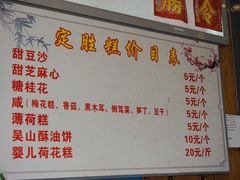 胜 令
定胜糕价目表
甜豆沙 5元/个
甜芝麻心 5元/个
糖桂花 5元/个
咸(梅花糕、香菇、黑木耳、倒笃菜、笋丁、豆干) 5元/个
薄荷糕 5元/个
吴山酥油饼 10元/个
婴儿荷花糕 20元/斤